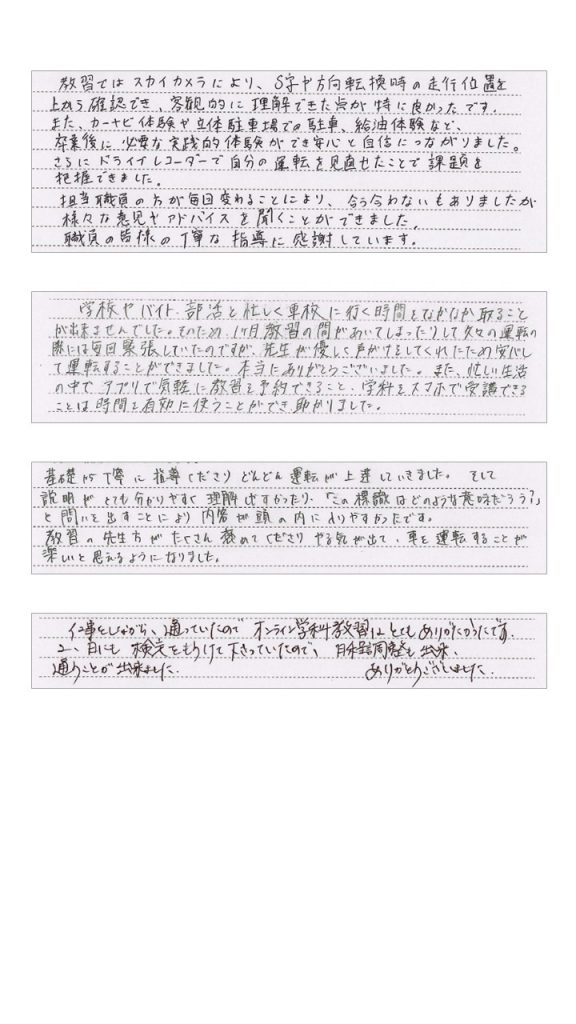 教習ではスカイカメラにより、S字や方向転換時の走行位置を
上から確認でき、客観的に理解できた点が特に良かったです。
また、カーナビ体験や立体駐車場での駐車、給油体験など、
卒業後に必要な実践的体験ができ安心と自信につながりました。
さらにドライブレコーダーで自分の運転を見直せたことで課題を
把握できました。
担当職員の方が毎回変わることにより、合う合わないもありましたが
様々な意見やアドバイスを聞くことができました。
職員の皆様の丁寧な指導に感謝しています。
学校やバイト、部活と忙しく車校に行く時間をなかなか取ること
が出来ませんでした。そのため、1ヶ月教習の間があいてしまったりして久々の運転の
際には毎回緊張していたのですが、先生が優しく声かけをしてくれたため安心し
て運転することができました。本当にありがとうございました。また、忙しい生活
の中でアプリで気軽に教習を予約できること、学科をスマホで受講できる
ことは時間を有効に使うことができ助かりました。
基礎から丁寧に指導くださりどんどん運転が上達していきました。そして
説明がとても分かりやすく理解しやすかったり、「この標識はどのような意味だろう?」
と問いを出すことにより内容が頭の内に入りやすかったです。
教習の先生方がたくさん褒めてくださりやる気が出て、車を運転することが
楽しいと思えるようになりました。
仕事をしながら、通っていたのでオンライン学科教習はとてもありがたかったです。
土、日にも検定をもうけて下さっていたので、日程調整も出来、
通うことが出来ました。 ありがとうございました。